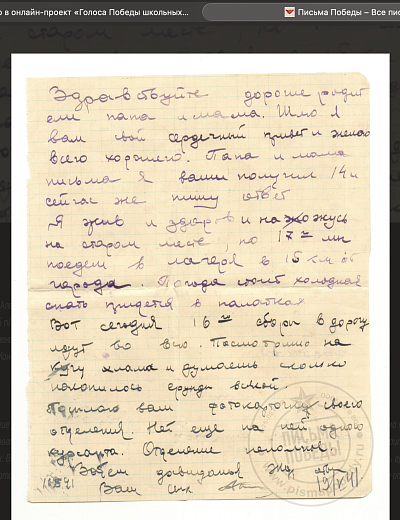 о в онлайн-проект «Голоса Победы школьных...
Письма Победы – Все пис
Здравствуйте дорогие родит
ели папа и мама. Шлю я
вам свой сердечный привет и желаю
всего хорошего. Папа и мама
письма я ваши получил 14 и
сейчас же пишу ответ
Я жив и здоров и нахожусь
на старом месте, но 17го мы
поедем в лагеря в 15 км от
города. Погода стоит холодная
спать придется в палатках
Вот сегодня 16го сборы в дорогу
идут во всю. Посмотришь на
кучу хлама и думаешь сколько
накопилось ерунды всякой.
Посылаю вам фотокарточку своего
отделения. Нет еще на ней одного
курсанта. Отделение неполное.
Всего досвидания жду отв
Ваш сын
ПИСЬМА
ПОБЕДЫ